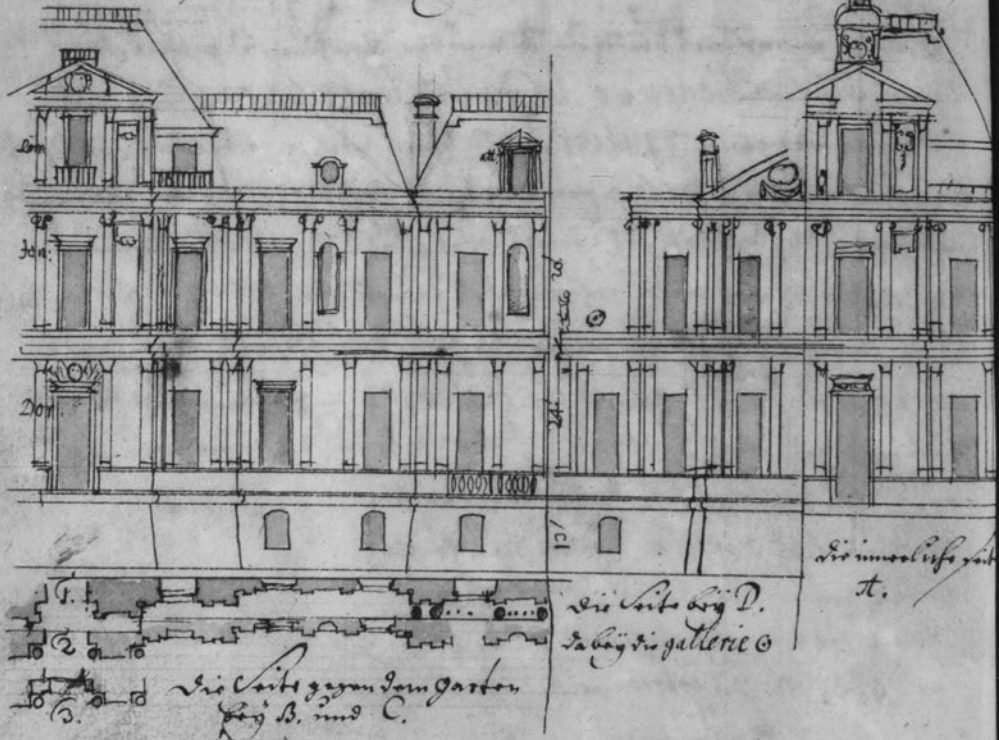 Cor.
att.
Jon:
20.
Dor.
24.
12/
1.
2
3.
die Seite gegen dem garten
bey B. und C.
die Seite bey D.
dabey die gallerie ⊙
die innerliche seit
A.